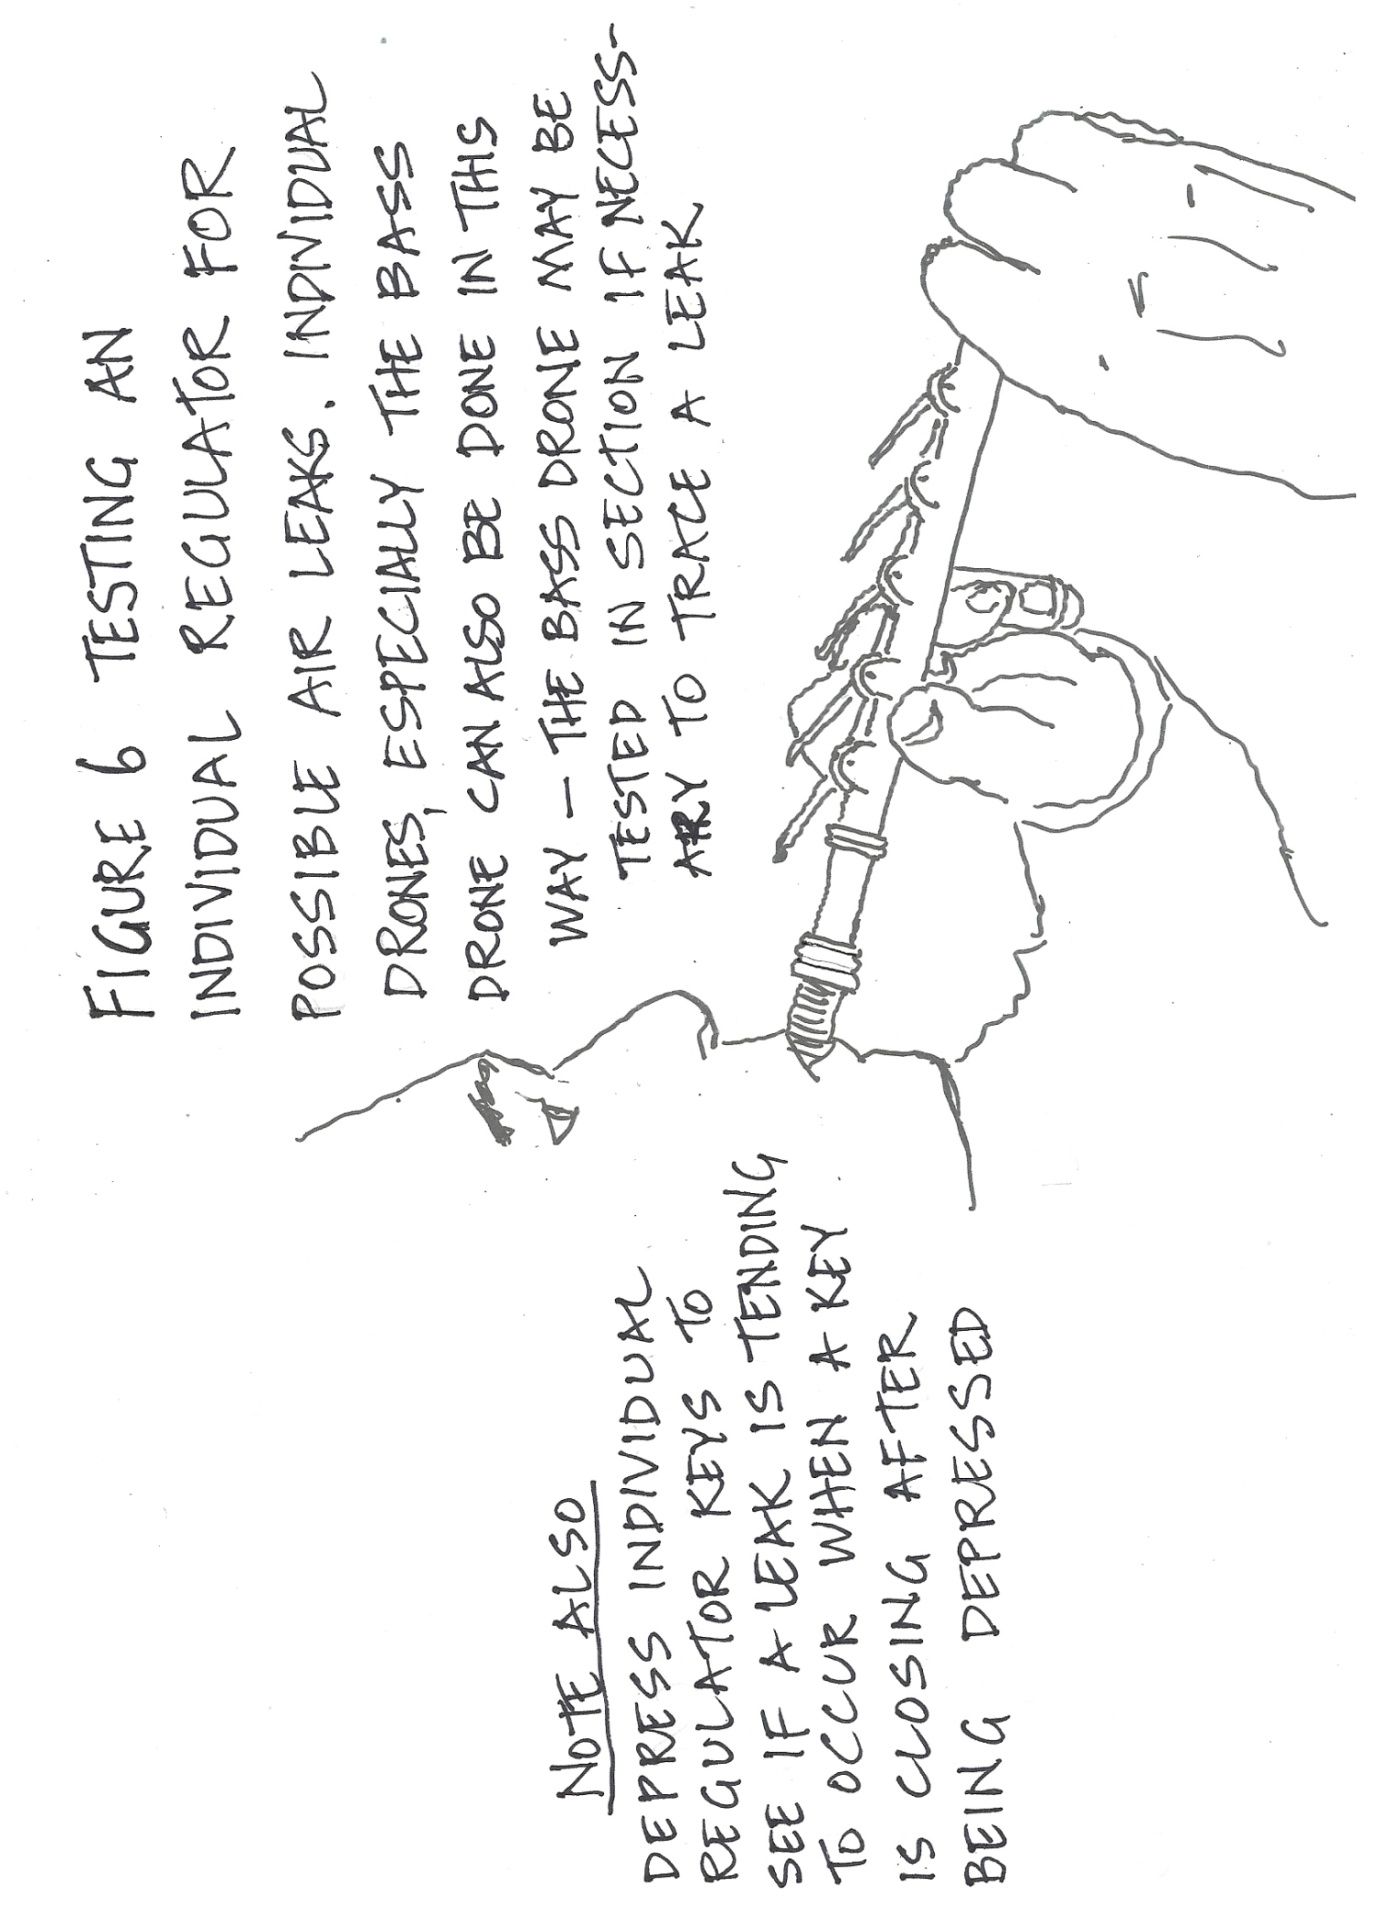 FIGURE 6 TESTING AN
INDIVIDUAL REGULATOR FOR
POSSIBLE AIR LEAKS. INDIVIDUAL
DRONES, ESPECIALLY THE BASS
DRONE CAN ALSO BE DONE IN THS
WAY – THE BASS DRONE MAY BE
TESTED IN SECTION IF NECESS-
ARY TO TRACE A LEAK
NOTE ALSO
DEPRESS INDIVIDUAL
REGULATOR KEYS TO
SEE IF A LEAK IS TENDING
TO OCCUR WHEN A KEY
IS CLOSING AFTER
BEING DEPRESSED